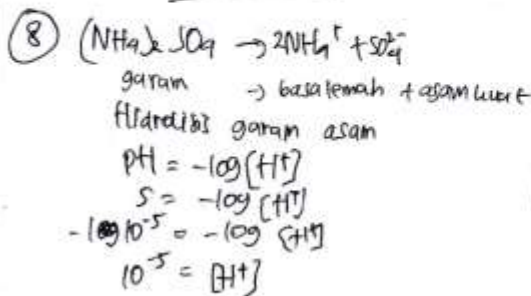 8 (NH4)2 SO4 → 2NH4⁺ + SO4²⁻
garam → basa lemah + asam kuat
Hidrolisis garam asam
pH = -log [H⁺]
5 = -log [H⁺]
-log 10⁻⁵ = -log [H⁺]
10⁻⁵ = [H⁺]